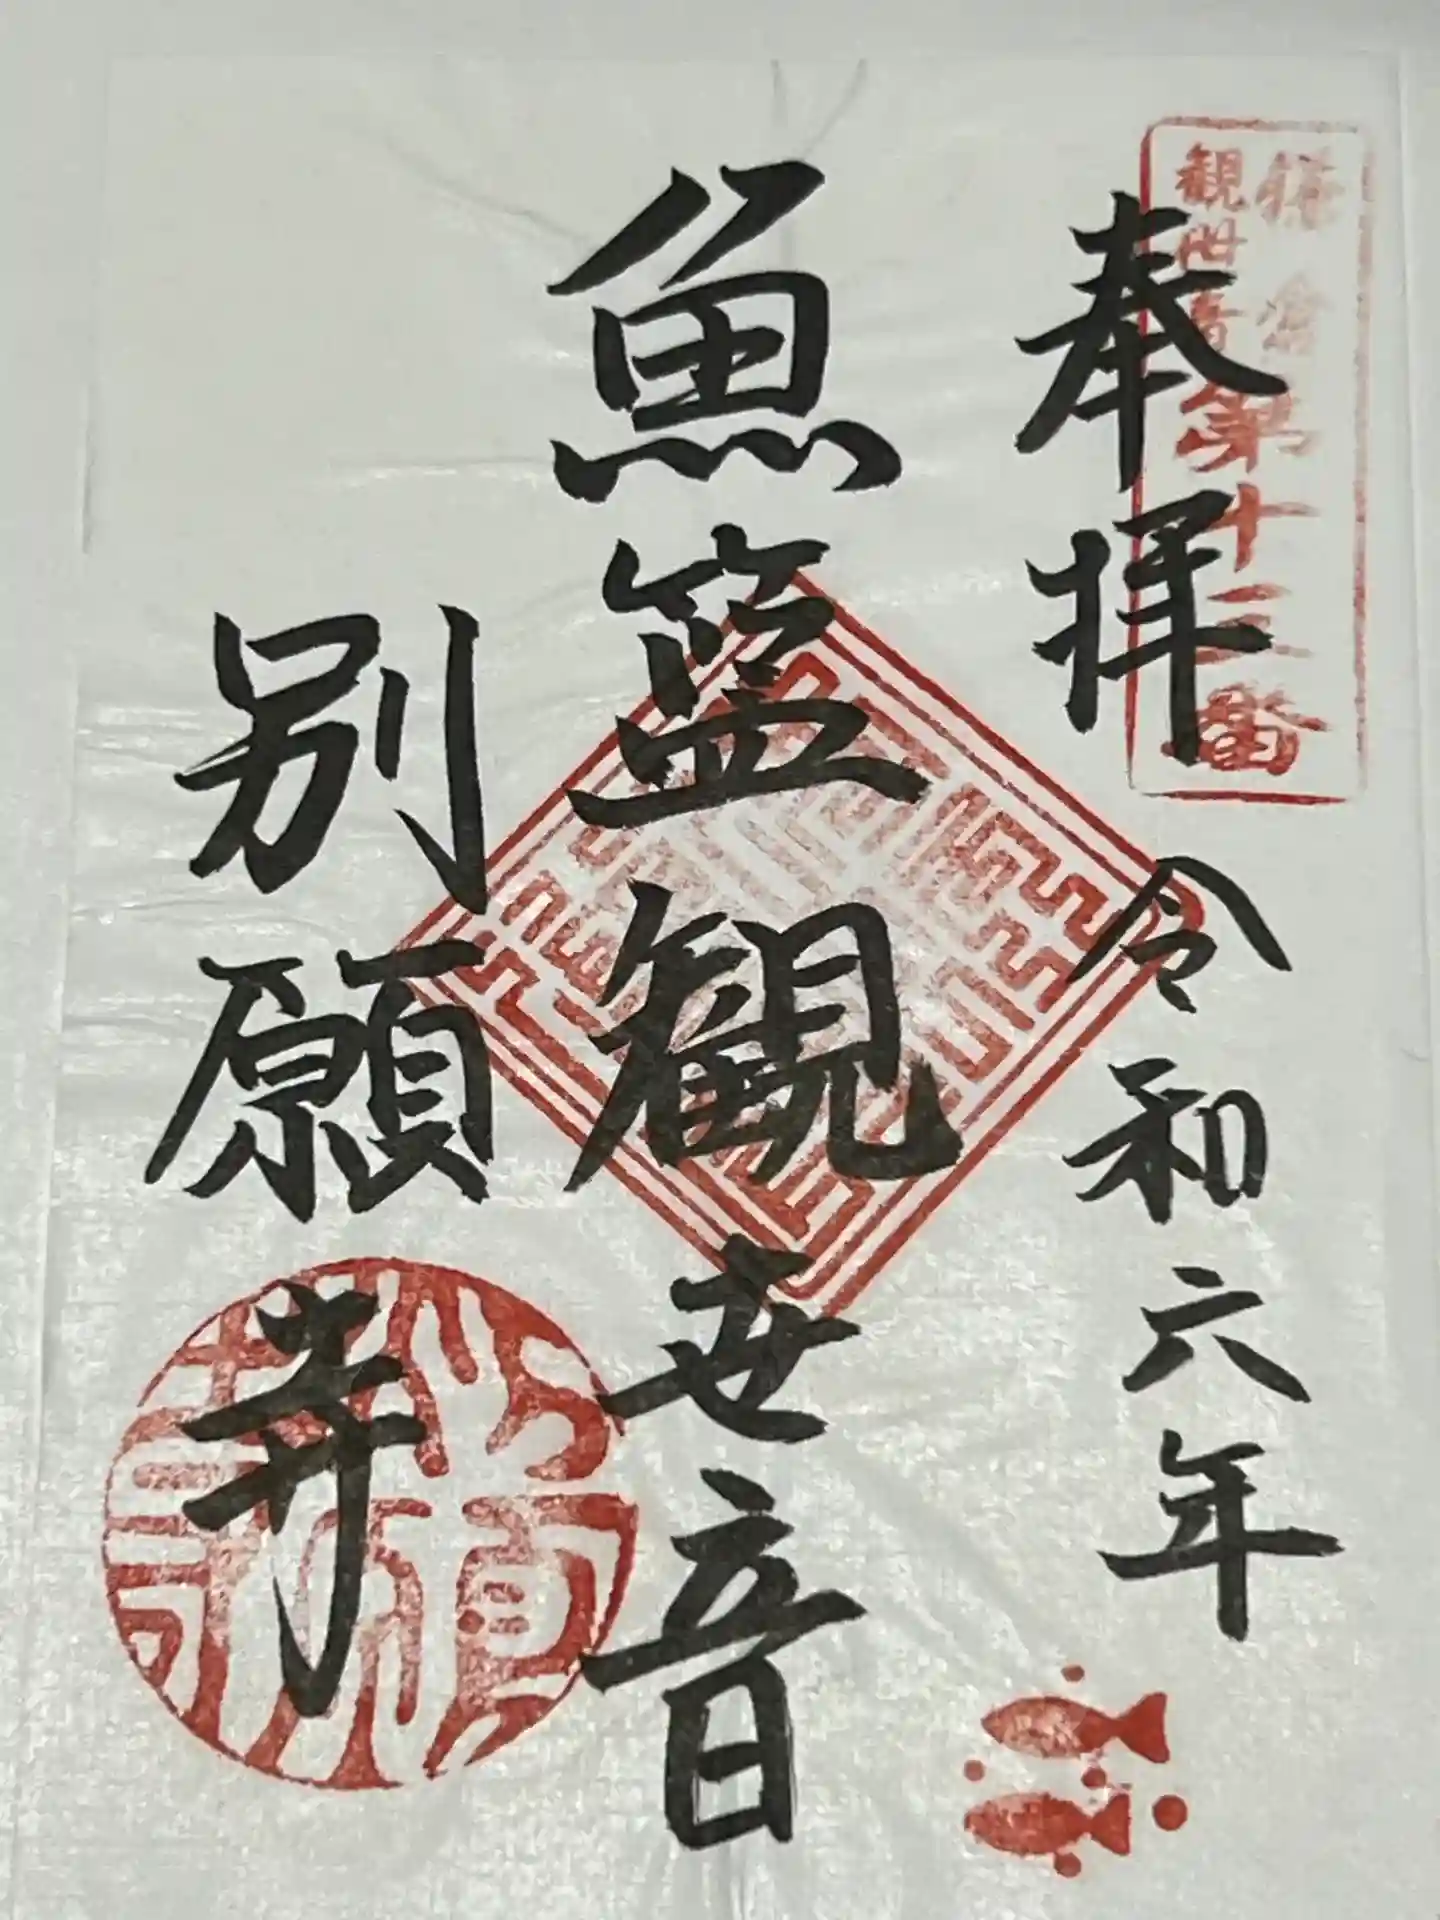 鎌倉
観世音第十三番
奉拝
令和六年
魚籃観世音
別願寺